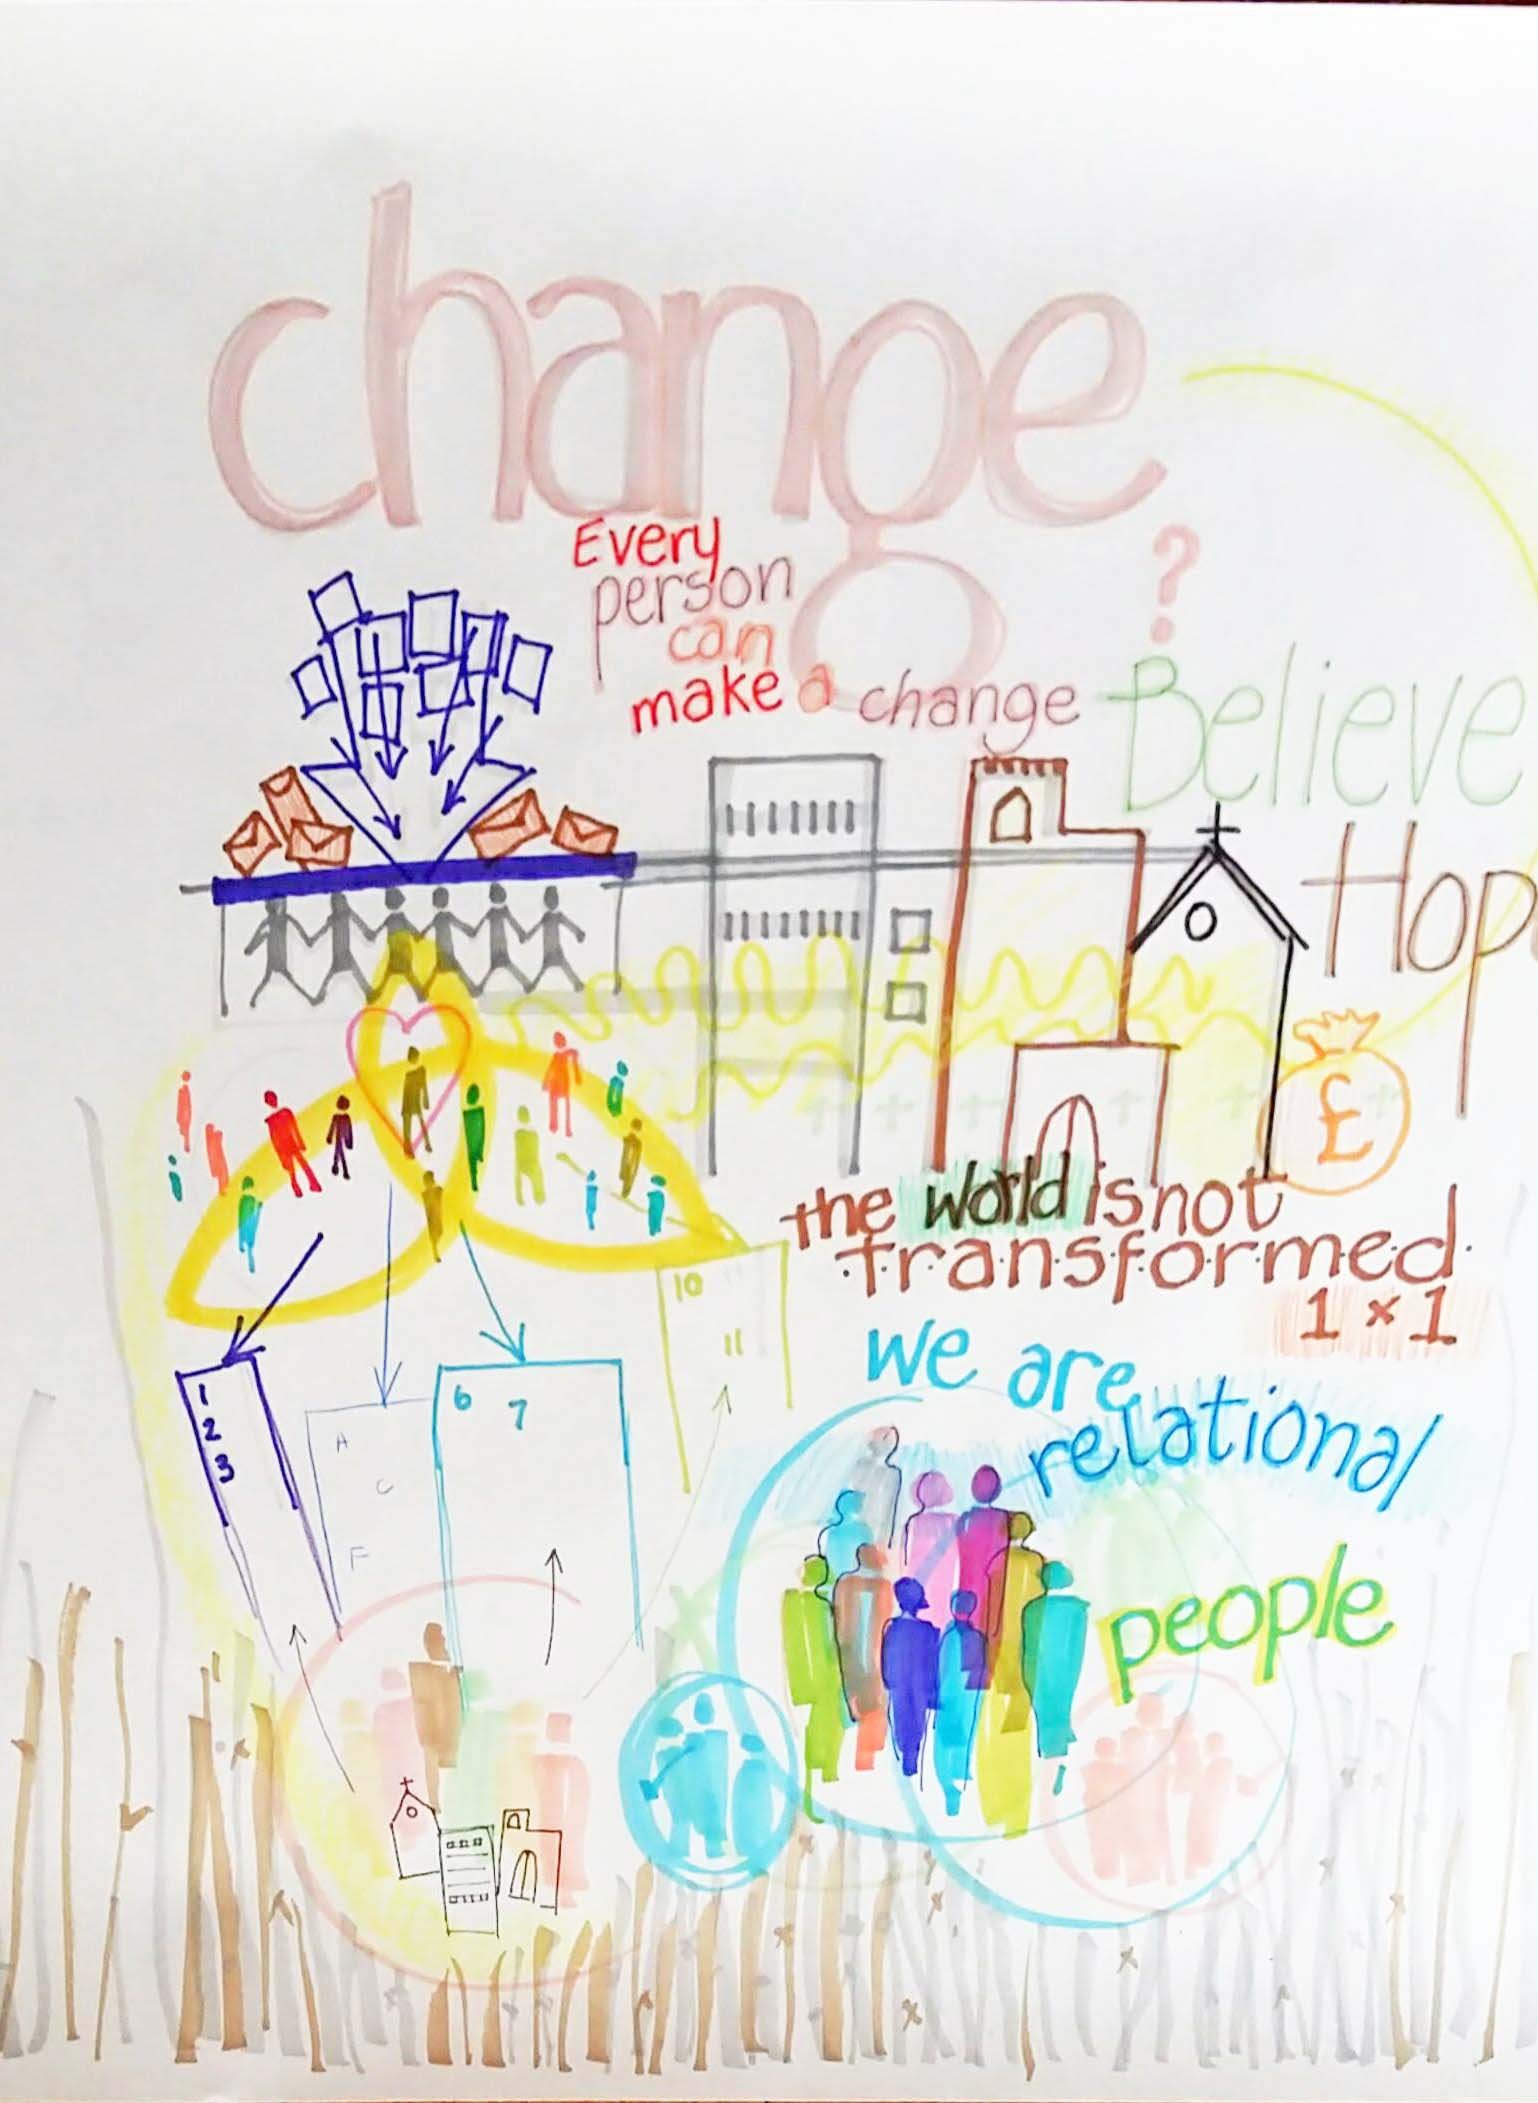 change
?
Every
person
can
make a change
Believe
Hop
£
the world is not
transformed
1 x 1
we are
relational
people
10
11
1
2
3
A
C
F
6 7